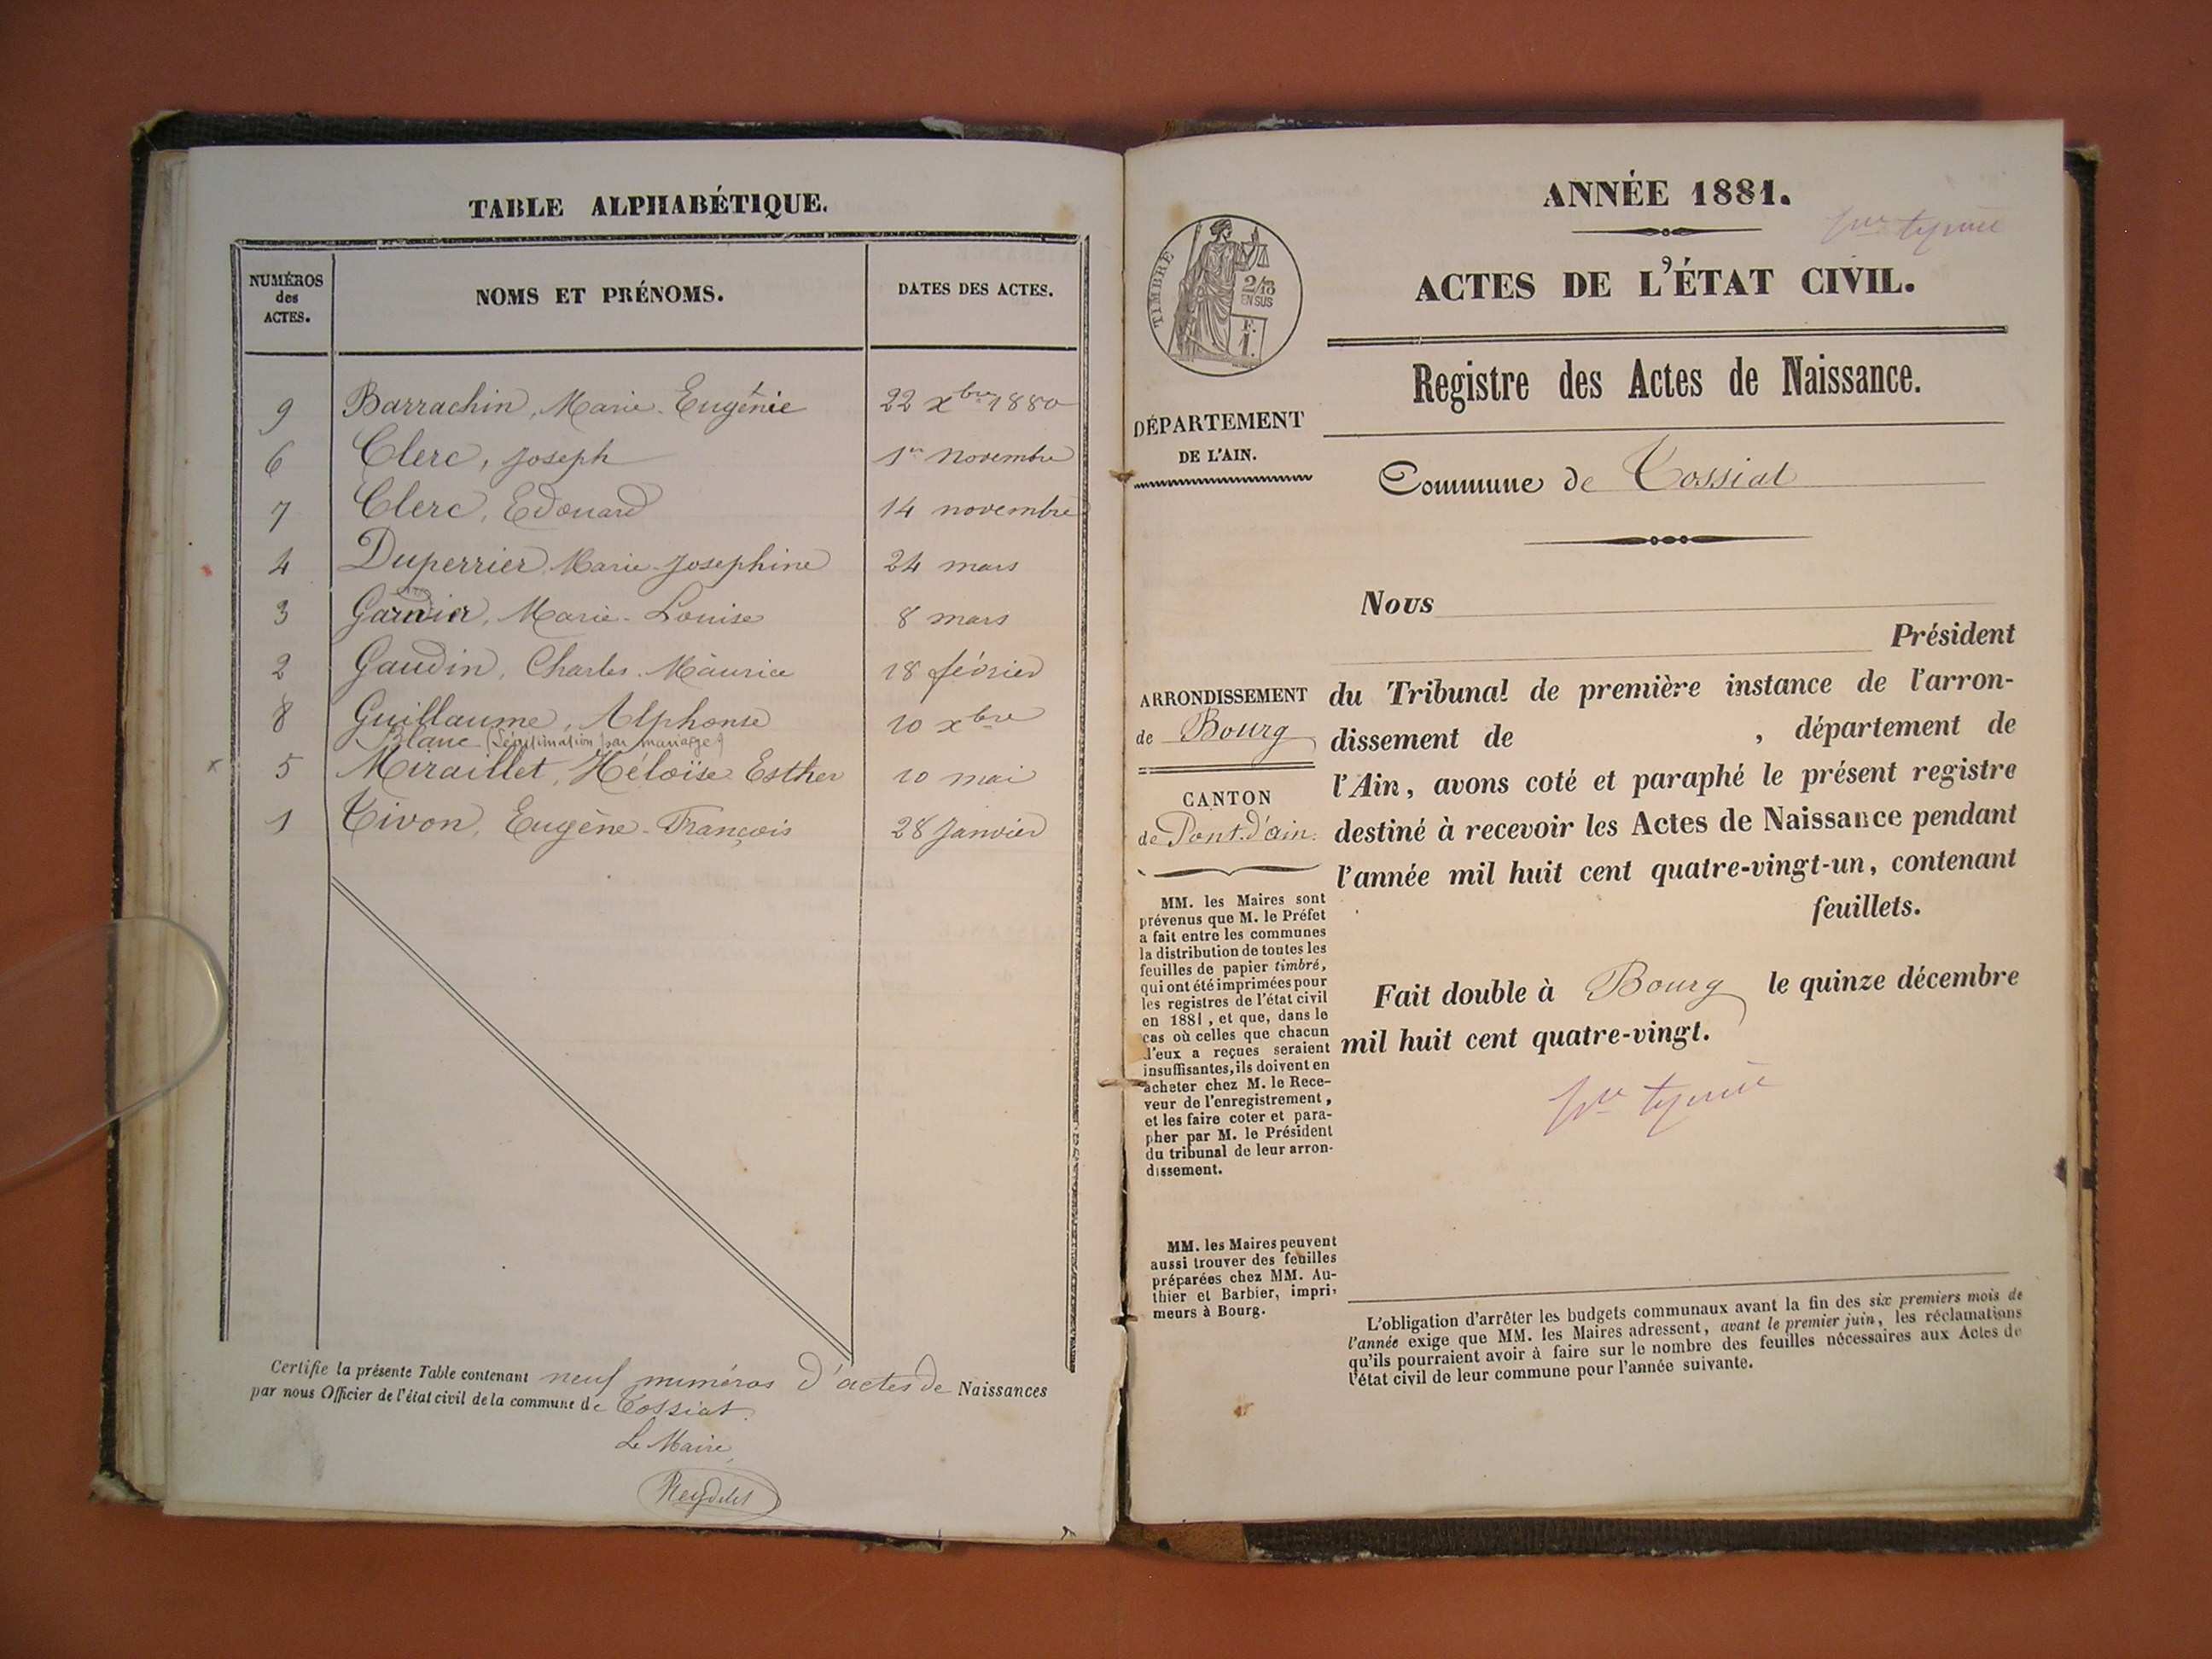 TABLE ALPHABÉTIQUE.
NUMÉROS
des
ACTES.
NOMS ET PRÉNOMS.
DATES DES ACTES.
9 Barrachin, Marie-Eugénie 22 xbre 1880
6 Clerc, Joseph 1er novembre
7 Clerc, Edouard 14 novembre
4 Duperrier Marie-Josephine 24 mars
3 Marie-Louise 8 mars
2 Gaudin, Charles-Maurice 18 février
8 Guillaume, Alphonse 10 xbre
Blanc (Légitimation par mariage)
x 5 Miraillet, Héloïse Esther 10 mai
1 Tivon, Eugène-François 28 Janvier
Certifie la présente Table contenant neuf numéros d'actes de Naissances
par nous Officier de l'état civil de la commune de Tossiat.
Le Maire,
Reydelet
ANNÉE 1881.
ACTES DE L'ÉTAT CIVIL.
TIMBRE
2/10
EN SUS
F.
1.
Registre des Actes de Naissance.
DÉPARTEMENT
DE L'AIN.
Commune de Tossiat
Nous
Président
ARRONDISSEMENT
de Bourg
CANTON
de Pont-d'ain
du Tribunal de première instance de l'arron-
dissement de , département de
l'Ain, avons coté et paraphé le présent registre
destiné à recevoir les Actes de Naissance pendant
l'année mil huit cent quatre-vingt-un, contenant
feuillets.
Fait double à Bourg le quinze décembre
mil huit cent quatre-vingt.
MM. les Maires sont
prévenus que M. le Préfet
a fait entre les communes
la distribution de toutes les
feuilles de papier timbré,
qui ont été imprimées pour
les registres de l'état civil
en 1881, et que, dans le
cas où celles que chacun
d'eux a reçues seraient
insuffisantes, ils doivent en
acheter chez M. le Rece-
veur de l'enregistrement,
et les faire coter et para-
pher par M. le Président
du tribunal de leur arron-
dissement.
MM. les Maires peuvent
aussi trouver des feuilles
préparées chez MM. Au-
thier et Barbier, impri-
meurs à Bourg.
L'obligation d'arrêter les budgets communaux avant la fin des six premiers mois de
l'année exige que MM. les Maires adressent, avant le premier juin, les réclamations
qu'ils pourraient avoir à faire sur le nombre des feuilles nécessaires aux Actes de
l'état civil de leur commune pour l'année suivante.